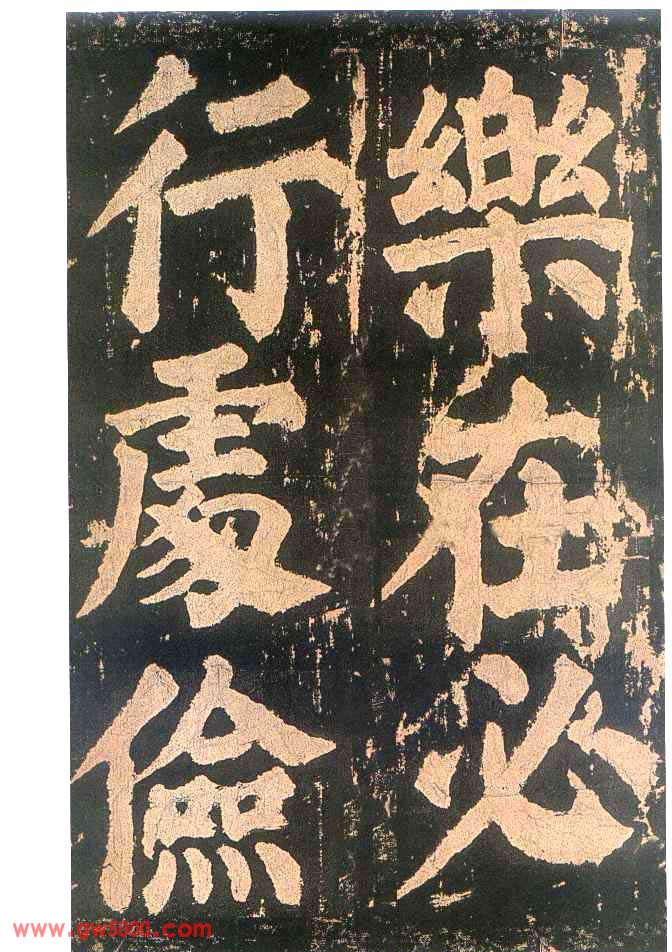 樂在必
行處儉
www.gw5000.com